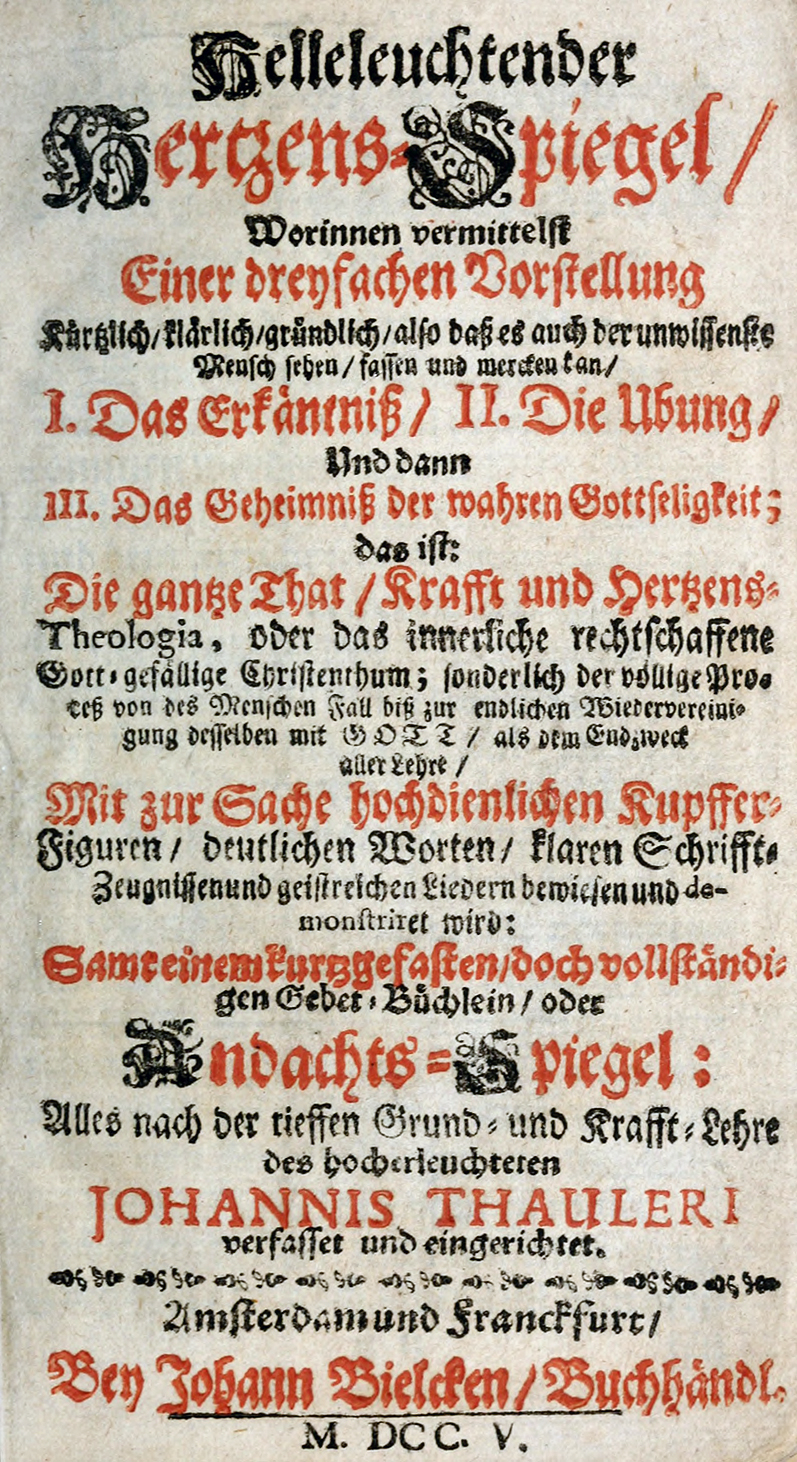 Helleleuchtender
Hertzens-Spiegel /
Worinnen vermittelst
Einer dreyfachen Vorstellung
Kürtzlich / klärlich / gründlich / also daß es auch der unwissenste
Mensch sehen / fassen und mercken kan /
I. Das Erkäntniß / II. Die Ubung /
Und dann
III. Das Geheimniß der wahren Gottseligkeit;
das ist:
Die gantze That / Krafft und Hertzens-
Theologia, oder das innerliche rechtschaffene
Gott-gefällige Christenthum; sonderlich der völlige Pro-
ceß von des Menschen Fall biß zur endlichen Wiedervereini-
gung desselben mit GOTT / als dem Endzweck
aller Lehre /
Mit zur Sache hochdienlichen Kupffer-
Figuren / deutlichen Worten / klaren Schrifft-
Zeugnissen und geistreichen Liedern bewiesen und de-
monstriret wird:
Samt einem kurtzgefasten / doch vollständi-
gen Gebet-Büchlein / oder
Andachts-Spiegel:
Alles nach der tieffen Grund- und Krafft-Lehre
des hocherleuchteten
JOHANNIS THAULERI
verfasset und eingerichtet.
Amsterdam und Franckfurt /
Bey Johann Bielcken / Buchhändl.
M. DCC. V.